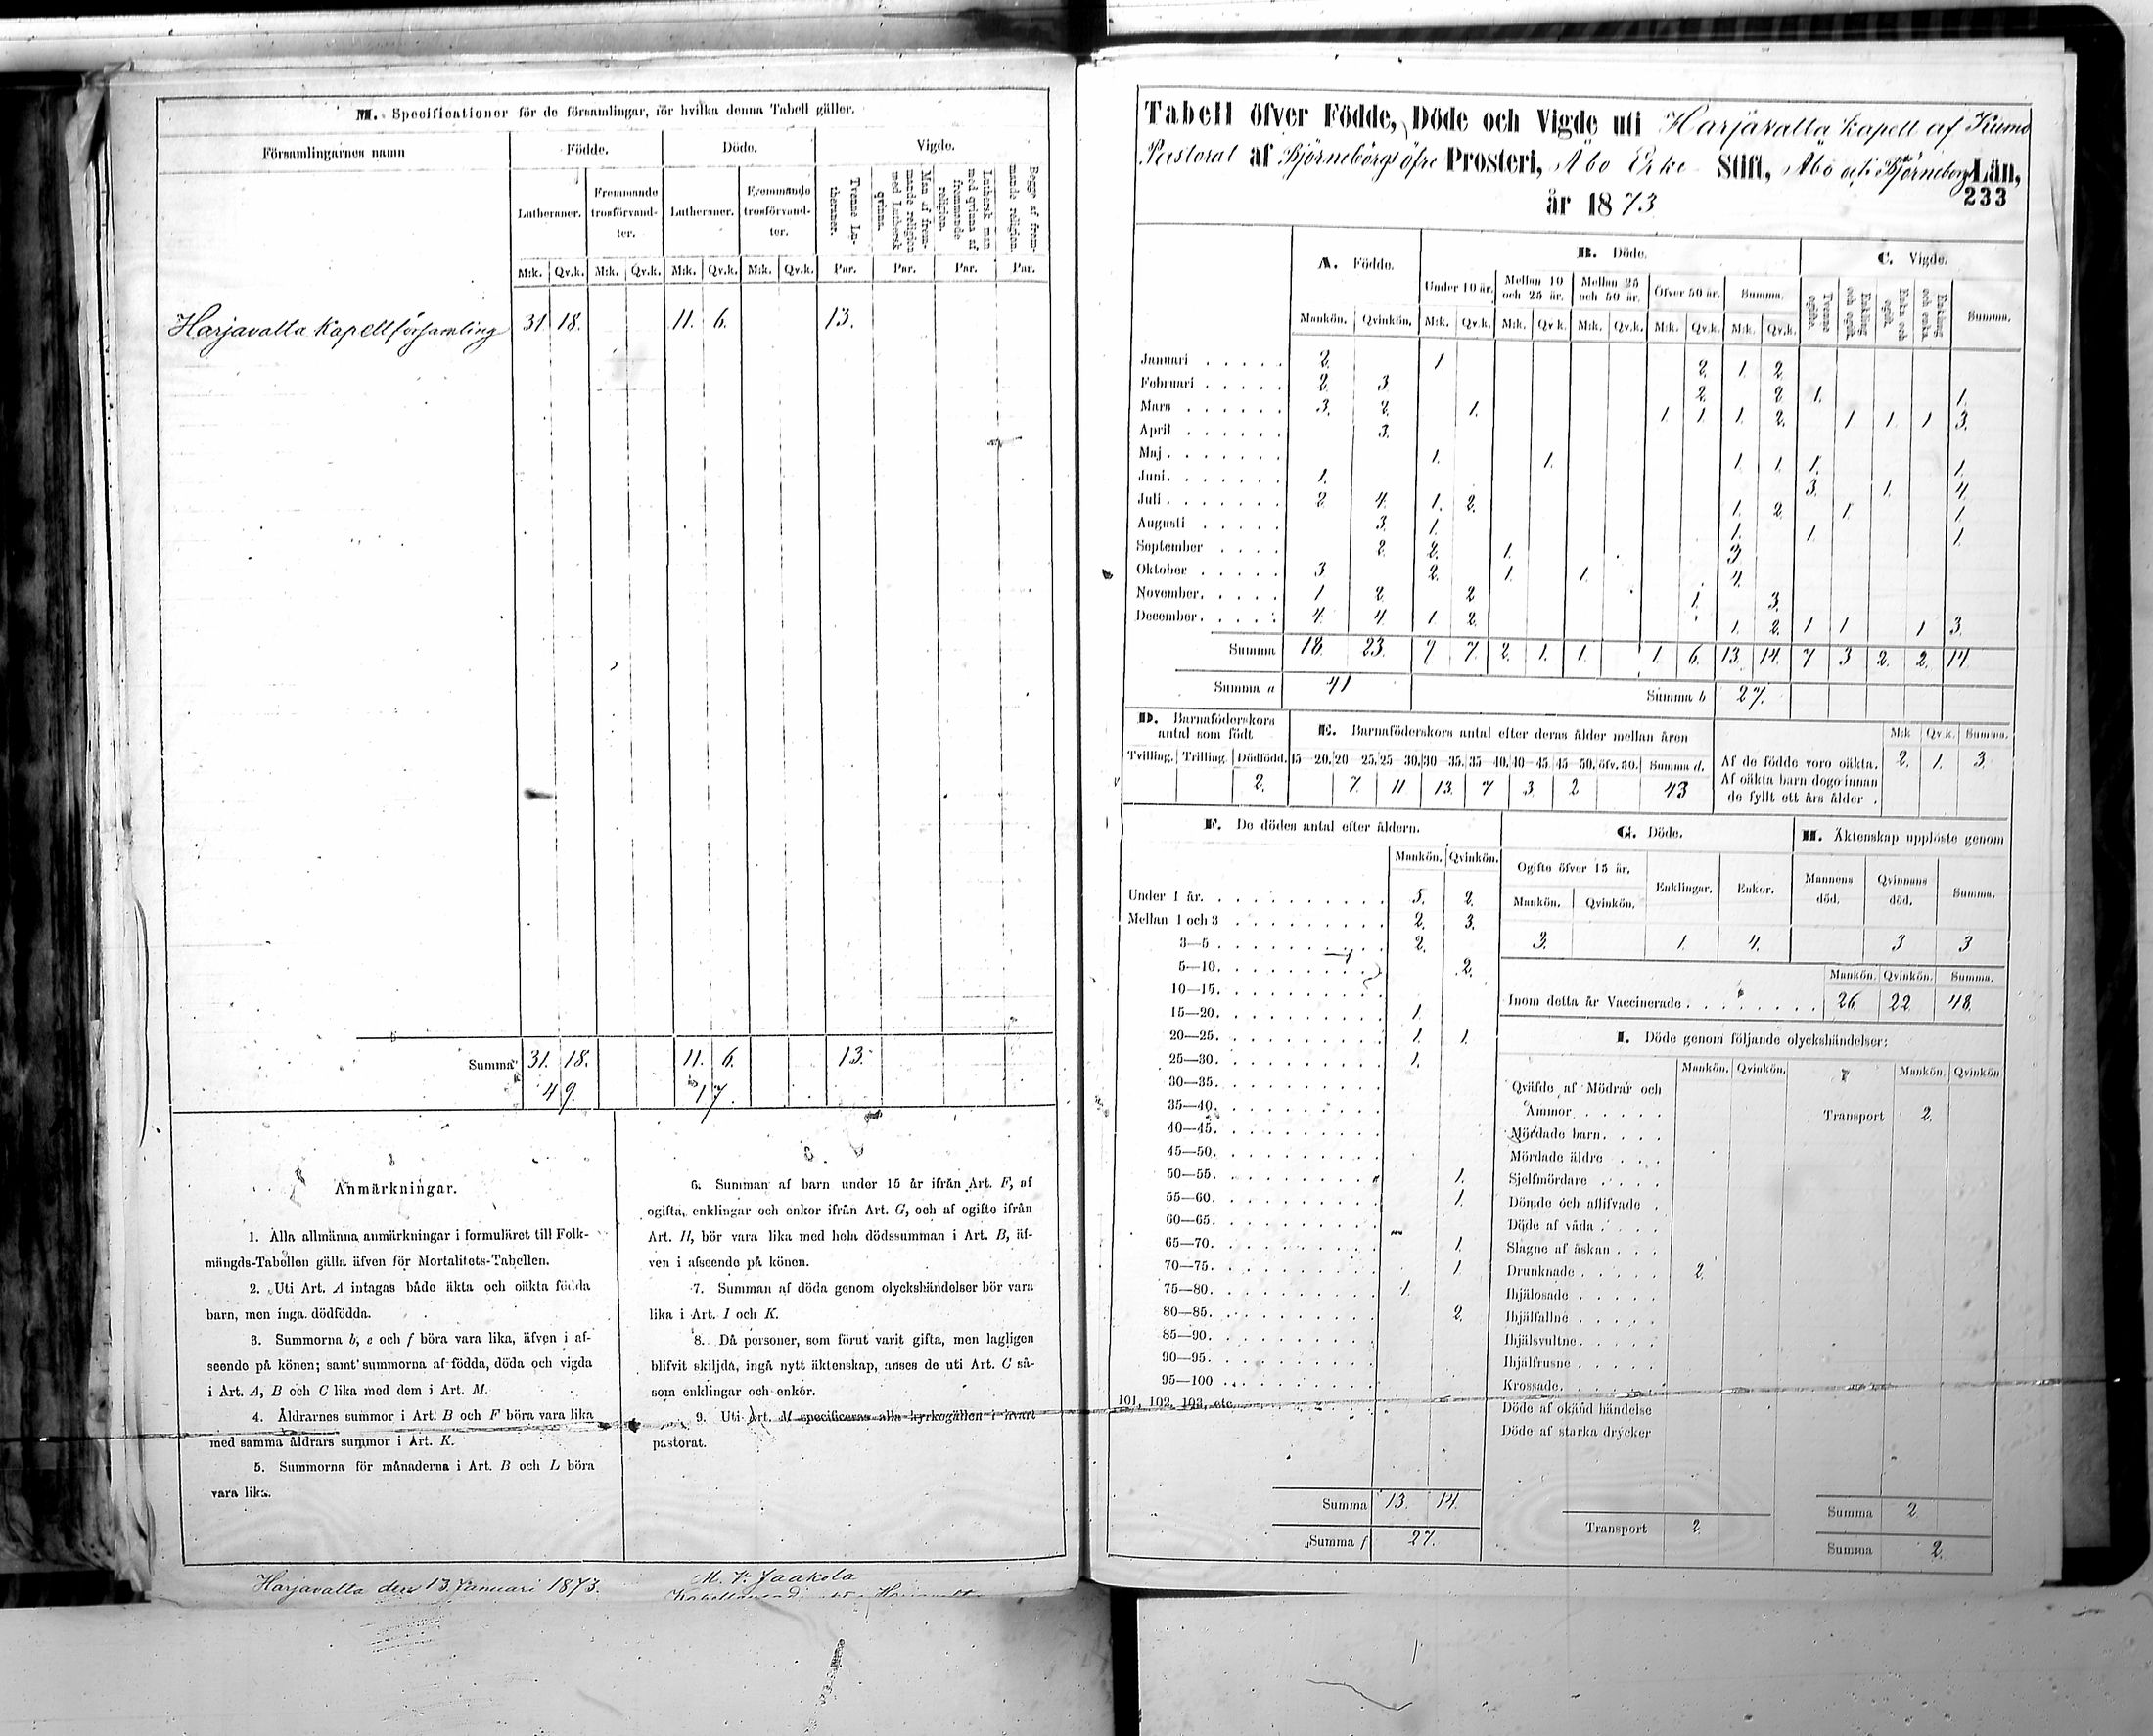 M. Specificationer för de församlingar, för hvilka denna Tabell gäller.
Församlingarnes namn
Födde.
Döde.
Vigde.
Lutheraner.
Fremmande trosförvandter.
Lutheraner.
Fremmande trosförvandter.
Tvenne Lutheraner.
Man af fremmande religion med Luthersk qvinna.
Luthersk man med qvinna af fremmande religion.
Begge af fremmande religion.
M:k. Qv.k. M:k. Qv.k. M:k. Qv.k. M:k. Qv.k. Par. Par. Par. Par.
Harjavalta Kapellförsamling 31 18. 11. 6. 13.
Summa 31. 18. 11. 6. 13.
49. 17.
Anmärkningar.
1. Alla allmänna anmärkningar i formuläret till Folk-
mängds-Tabellen gälla äfven för Mortalitets-Tabellen.
2. Uti Art. A intagas både äkta och oäkta födda
barn, men inga dödfödda.
3. Summorna b, c och f böra vara lika, äfven i af-
seende på könen; samt summorna af födda, döda och vigda
i Art. A, B och C lika med dem i Art. M.
4. Åldrarnes summor i Art. B och F böra vara lika
med samma åldrars summor i Art. K.
5. Summorna för månaderna i Art. B och L böra
vara lika.
6. Summan af barn under 15 år ifrån Art. F, af
ogifta, enklingar och enkor ifrån Art. G, och af ogifte ifrån
Art. H, bör vara lika med hela dödssumman i Art. B, äf-
ven i afseende på könen.
7. Summan af döda genom olyckshändelser bör vara
lika i Art. I och K.
8. Då personer, som förut varit gifta, men lagligen
blifvit skiljda, ingå nytt äktenskap, anses de uti Art. C så-
som enklingar och enkor.
9. Uti Art. M specificeras alla kyrkogällen i hvart
pastorat.
Harjavalta den 13 Januari 1873.
Jaakola
Tabell öfver Födde, Döde och Vigde uti Harjavalta Kapell af Kumo
Pastorat af Björneborgs öfre Prosteri, Åbo Erke Stift, Åbo och Björneborgs Län,
233
år 1873
A. Födde.
B. Döde.
C. Vigde.
Under 10 år. Mellan 10 och 25 år. Mellan 25 och 50 år. Öfver 50 år. Summa.
Tvenne ogifte. Enkling och ogift. Enka och ogift. Enkling och enka. Summa.
Mankön. Qvinkön. M:k. Qv.k. M:k. Qv.k. M:k. Qv.k. M:k. Qv.k. M:k. Qv.k.
Januari 2. 1 2. 1. 2.
Februari 2. 3 2. 2 1. 1.
Mars 3. 2. 1. 1 1 1. 2. 1 1 1 3.
April 3.
Maj 1. 1. 1 1. 1. 1.
Juni 1. 3. 1. 4.
Juli 2 4. 1. 2. 1. 2 1. 1
Augusti 3. 1. 1. 1. 1.
September 2. 2. 1. 3
Oktober 3 2. 1. 1. 4.
November 1 2 2 1. 3.
December 4. 4 1 2. 1. 2. 1 1 1 3.
Summa 18. 23. 7 7. 2. 1. 1. 1. 6. 13. 14. 7 3 2. 2. 14
Summa a 41 Summa b 27.
D. Barnaföderskors antal som födt
E. Barnaföderskors antal efter deras ålder mellan åren
M:k Qv.k. Summa.
Tvilling. Trilling. Dödfödd. 15—20. 20—25. 25—30. 30—35. 35—40. 40—45. 45—50. öfv. 50. Summa d.
2. 7. 11 13. 7 3. 2 43
Af de födde voro oäkta. 2. 1. 3.
Af oäkta barn dogo innan
de fyllt ett års ålder
F. De dödes antal efter åldern.
Mankön. Qvinkön.
Under 1 år. 5. 2.
Mellan 1 och 3 2. 3.
3—5 2.
5—10. 2.
10—15.
15—20. 1.
20—25. 1. 1.
25—30. 1.
30—35.
35—40.
40—45.
45—50.
50—55. 1.
55—60. 1.
60—65.
65—70. 1.
70—75. 1.
75—80. 1.
80—85. 2.
85—90.
90—95.
95—100
101, 102, 103, etc.
Summa 13. 14.
Summa f 27.
G. Döde.
Ogifte öfver 15 år. Enklingar. Enkor.
Mankön. Qvinkön.
3. 1. 4.
H. Äktenskap upplöste genom
Mannens död. Qvinnans död. Summa.
3 3
Mankön. Qvinkön. Summa.
Inom detta år Vaccinerade 26 22 48.
I. Döde genom följande olyckshändelser:
Mankön. Qvinkön. Mankön. Qvinkön
Qväfde af Mödrar och
Ammor
Transport 2.
Mördade barn.
Mördade äldre
Sjelfmördare
Dömde och aflifvade
Döde af våda
Slagne af åskan
Drunknade 2.
Ihjälosade
Ihjälfallne
Ihjälsvultne.
Ihjälfrusne
Krossade.
Döde af okänd händelse
Döde af starka drycker
Transport 2
Summa 2
Summa 2.